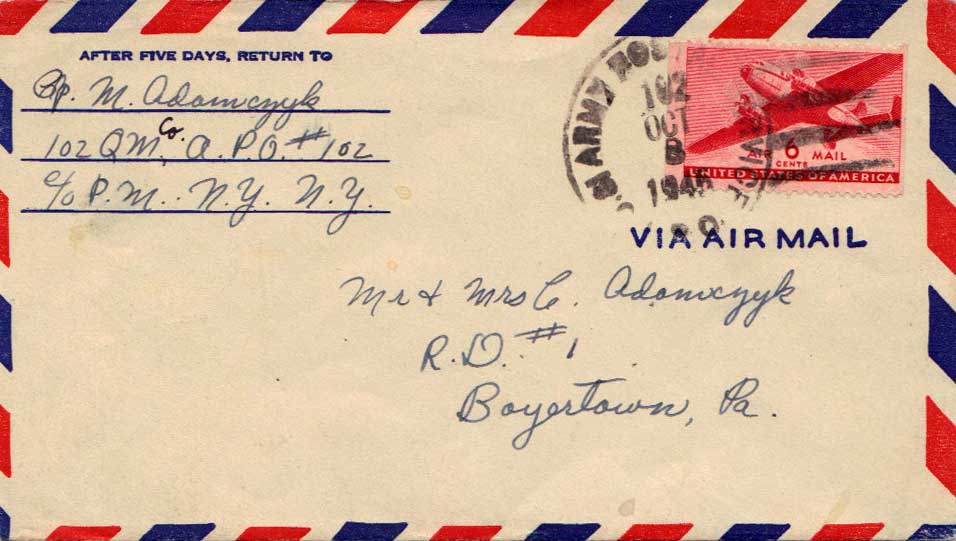 AFTER FIVE DAYS, RETURN TO
M. Adamczyk
102 QM Co. A.P.O. #102
c/o P.M. N.Y. N.Y.
ARMY
102
OCT
8
AIR 6 MAIL
CENTS
UNITED STATES OF AMERICA
VIA AIR MAIL
Mr & Mrs C. Adamczyk
R.D. #1
Boyertown, Pa.